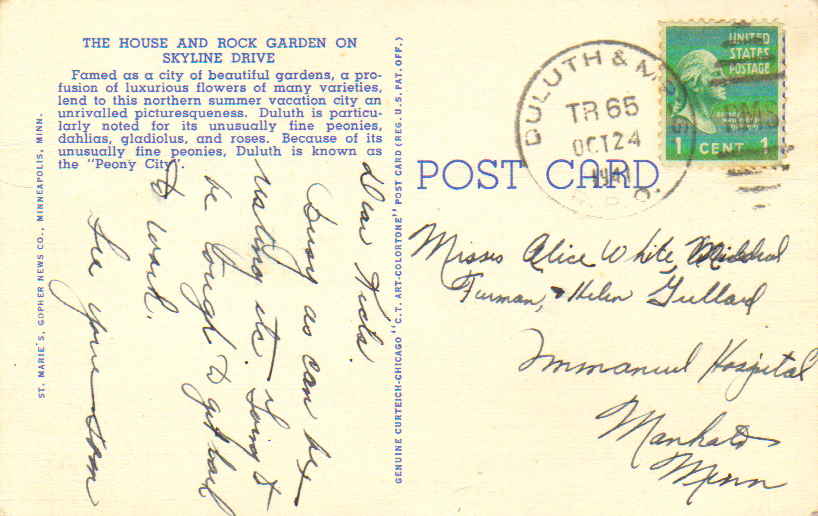 THE HOUSE AND ROCK GARDEN ON
SKYLINE DRIVE
Famed as a city of beautiful gardens, a pro-
fusion of luxurious flowers of many varieties,
lend to this northern summer vacation city an
unrivalled picturesqueness. Duluth is particu-
larly noted for its unusually fine peonies,
dahlias, gladiolus, and roses. Because of its
unusually fine peonies, Duluth is known as
the "Peony City".
ST. MARIE'S, GOPHER NEWS CO., MINNEAPOLIS, MINN.
Dear Kids.
Busy as can be –
visiting etc. – Going to
be tough to get back
to work.
See you soon
GENUINE CURTEICH-CHICAGO "C.T. ART-COLORTONE" POST CARD (REG. U.S. PAT. OFF.)
POST CARD
DULUTH &
TR 65
OCT 24
1941
R.P.O.
UNITED
STATES
POSTAGE
1 CENT 1
Misses Alice White, Mildred
Furman, & Helen Gullard
Immanuel Hospital
Mankato
Minn